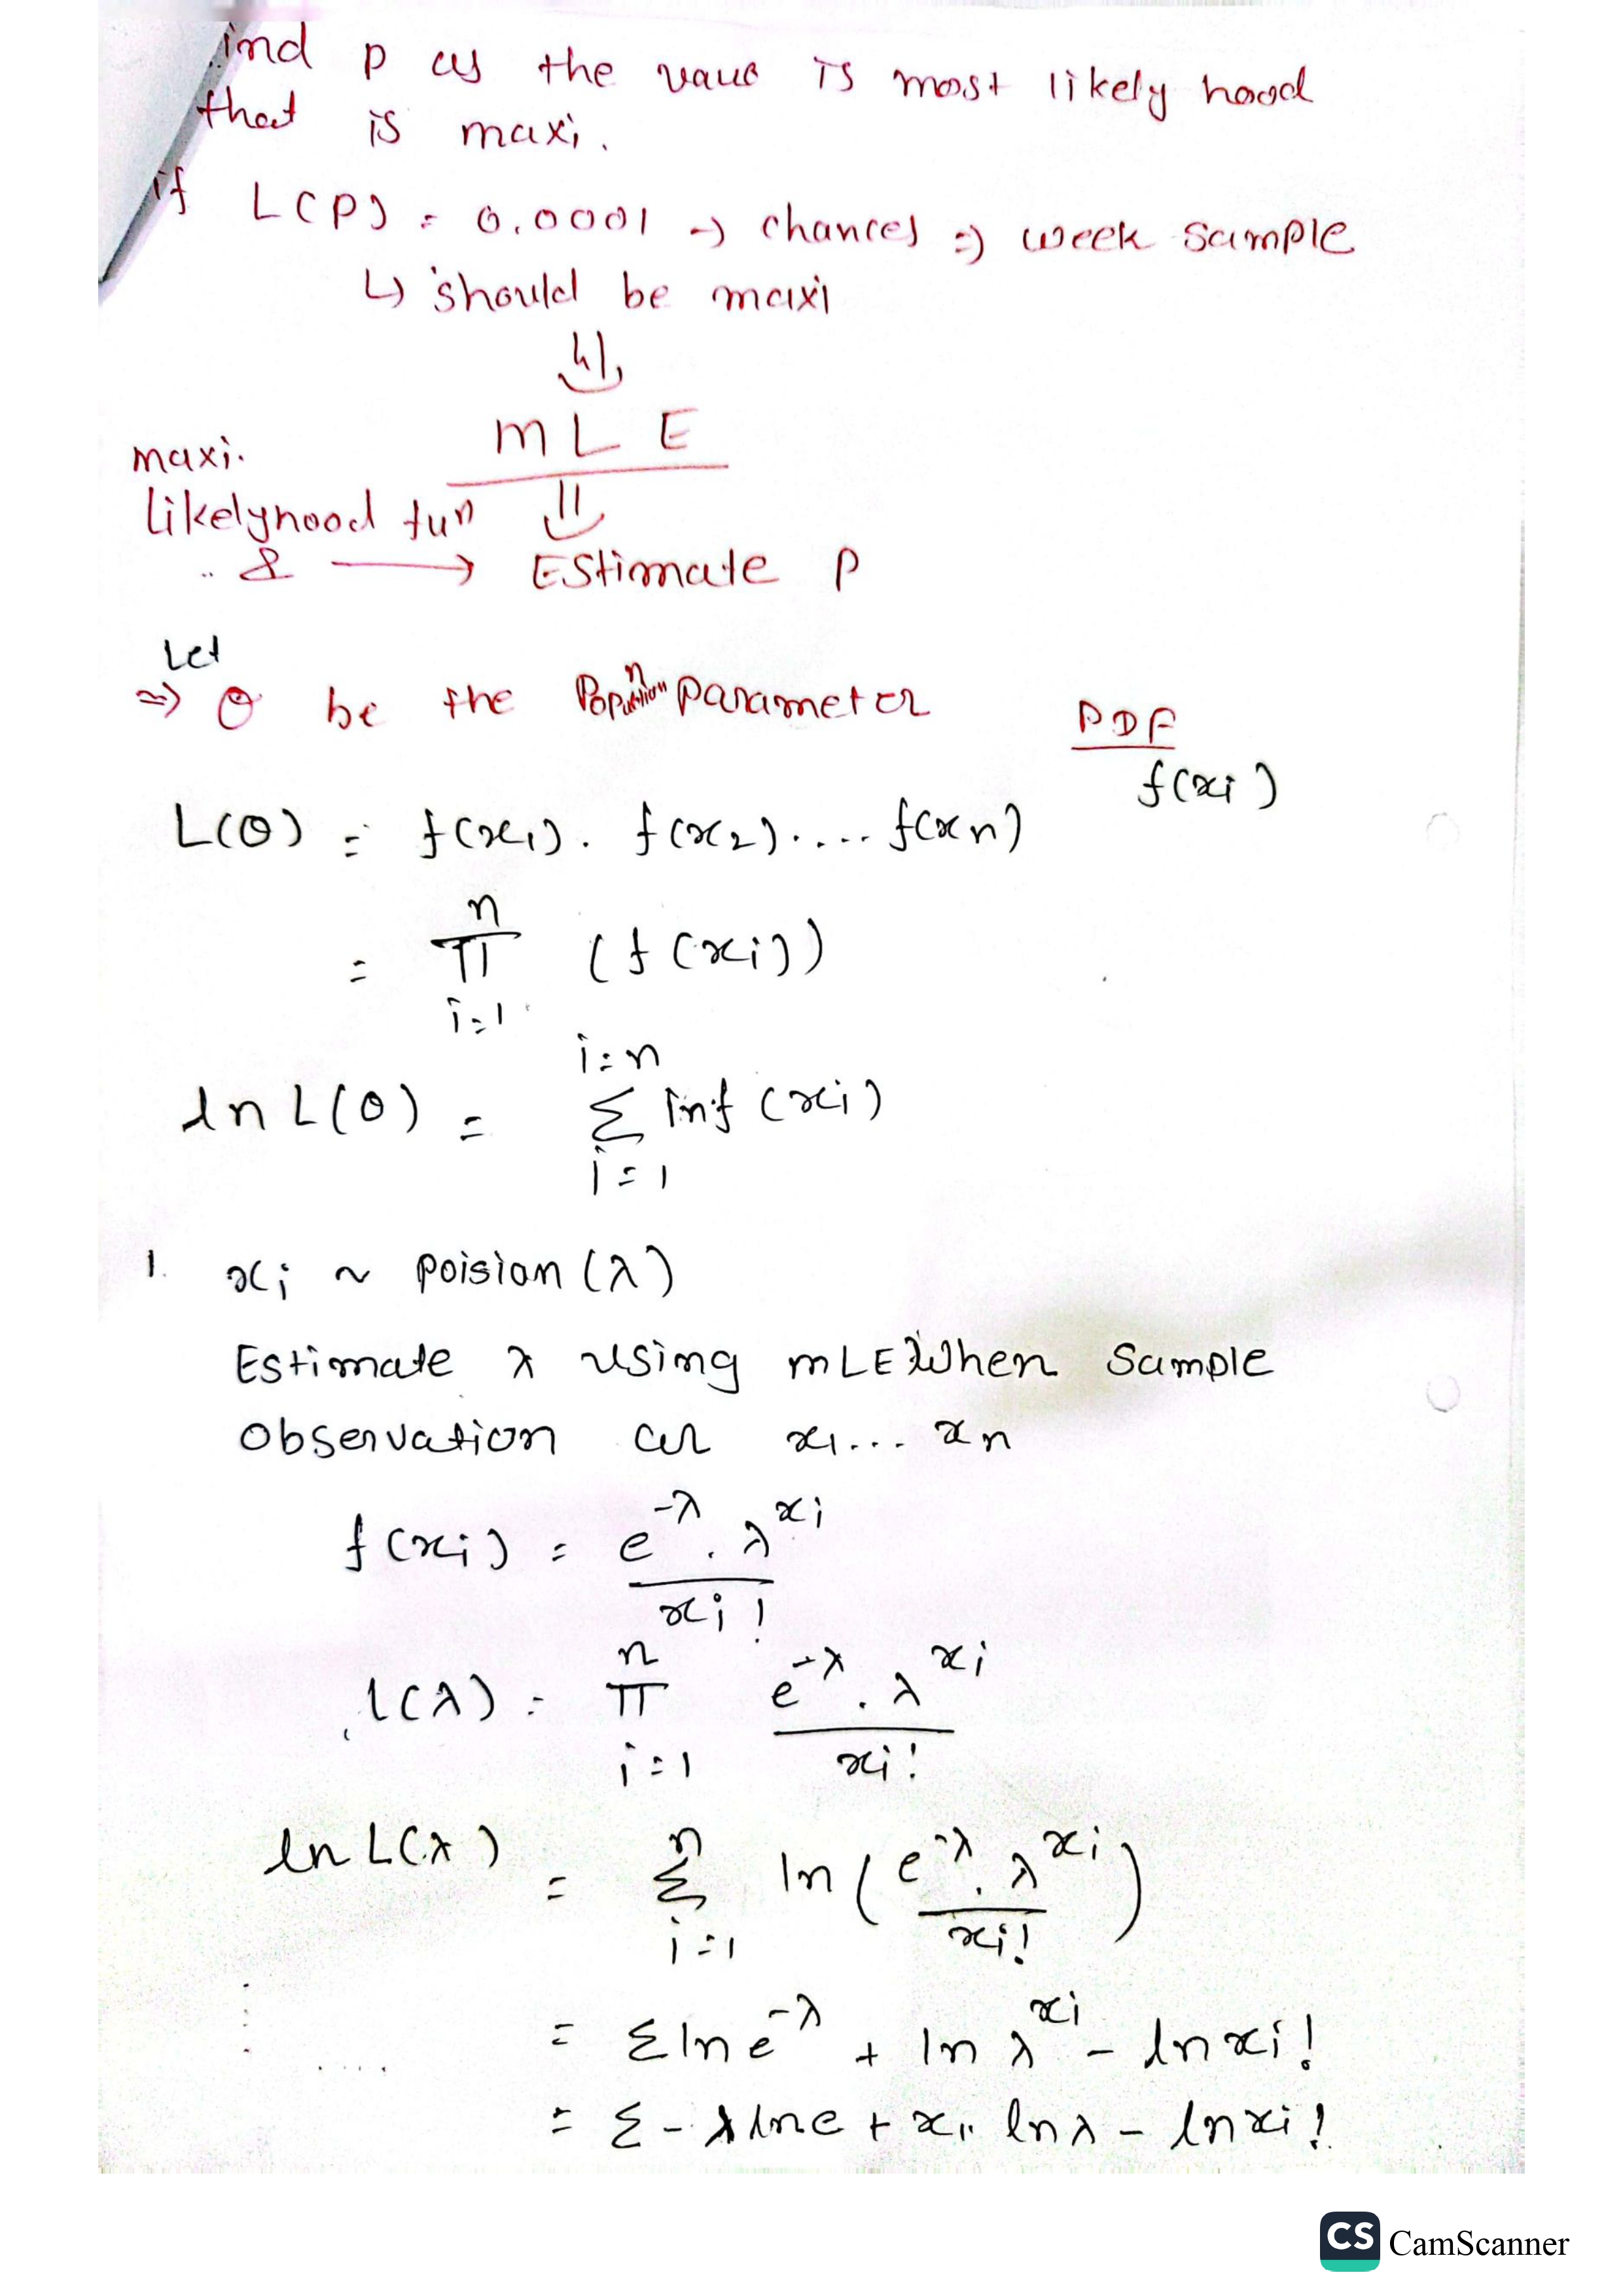 ind p as the vaue is most likely hood
that is maxi.
if L(P) = 0.0001 → chances ⇒ week sample
↳ should be maxi
⇓
MLE
maxi.
likelyhood funⁿ ⇓
& → Estimate P
Let
⇒ θ be the Populationⁿ parameter
PDF
f(xi)
L(θ) = f(x₁). f(x₂)..... f(xn)
= π (i=1 to n) (f(xi))
ln L(θ) = Σ (i=1 to i=n) lnf(xi)
1. xi ~ poision(λ)
Estimate λ using MLE When Sample
Observation ar x₁... xn
f(xi) = e^-λ . λ^xi / xi!
L(λ) = π (i=1 to n) e^-λ . λ^xi / xi!
ln L(λ) = Σ (i=1 to n) ln(e^-λ . λ^xi / xi!)
= Σ ln e^-λ + ln λ^xi - ln xi!
= Σ - λ ln e + xi. ln λ - ln xi!
CS CamScanner